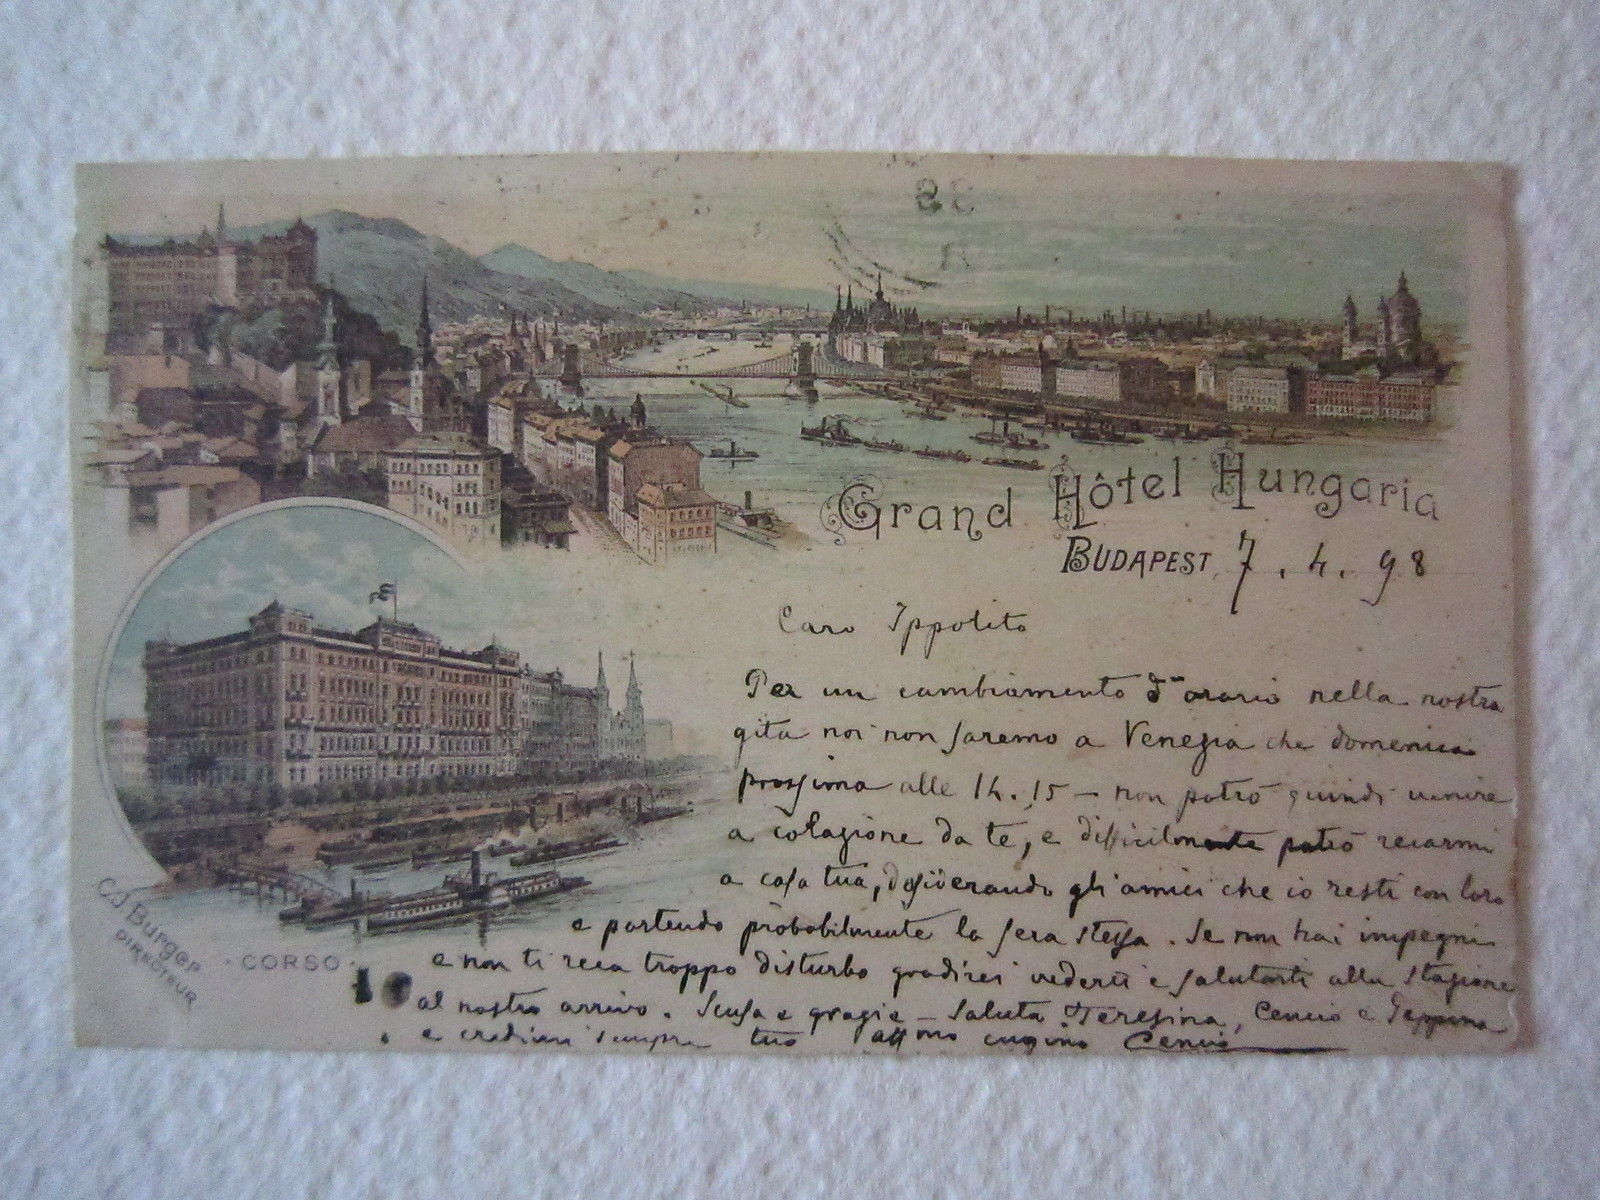 Grand Hôtel Hungaria
BUDAPEST, 7. 4. 98
Caro Ippolito
Per un cambiamento d'orario nella nostra
gita noi non saremo a Venezia che domenica
prossima alle 14.15 – non potrò quindi venire
a colazione da te, e difficilmente potrò recarmi
a casa tua, desiderando gli amici che io resti con loro
e partendo probabilmente la sera stessa. Se non hai impegni
e non ti reca troppo disturbo gradirei vederti e salutarti alla stazione
al nostro arrivo. Scusa e grazie – Saluta Teresina, Cencio e Peppina
e credimi sempre tuo aff mo cugino Cencio
C.J Burger
DIRECTEUR
- CORSO -